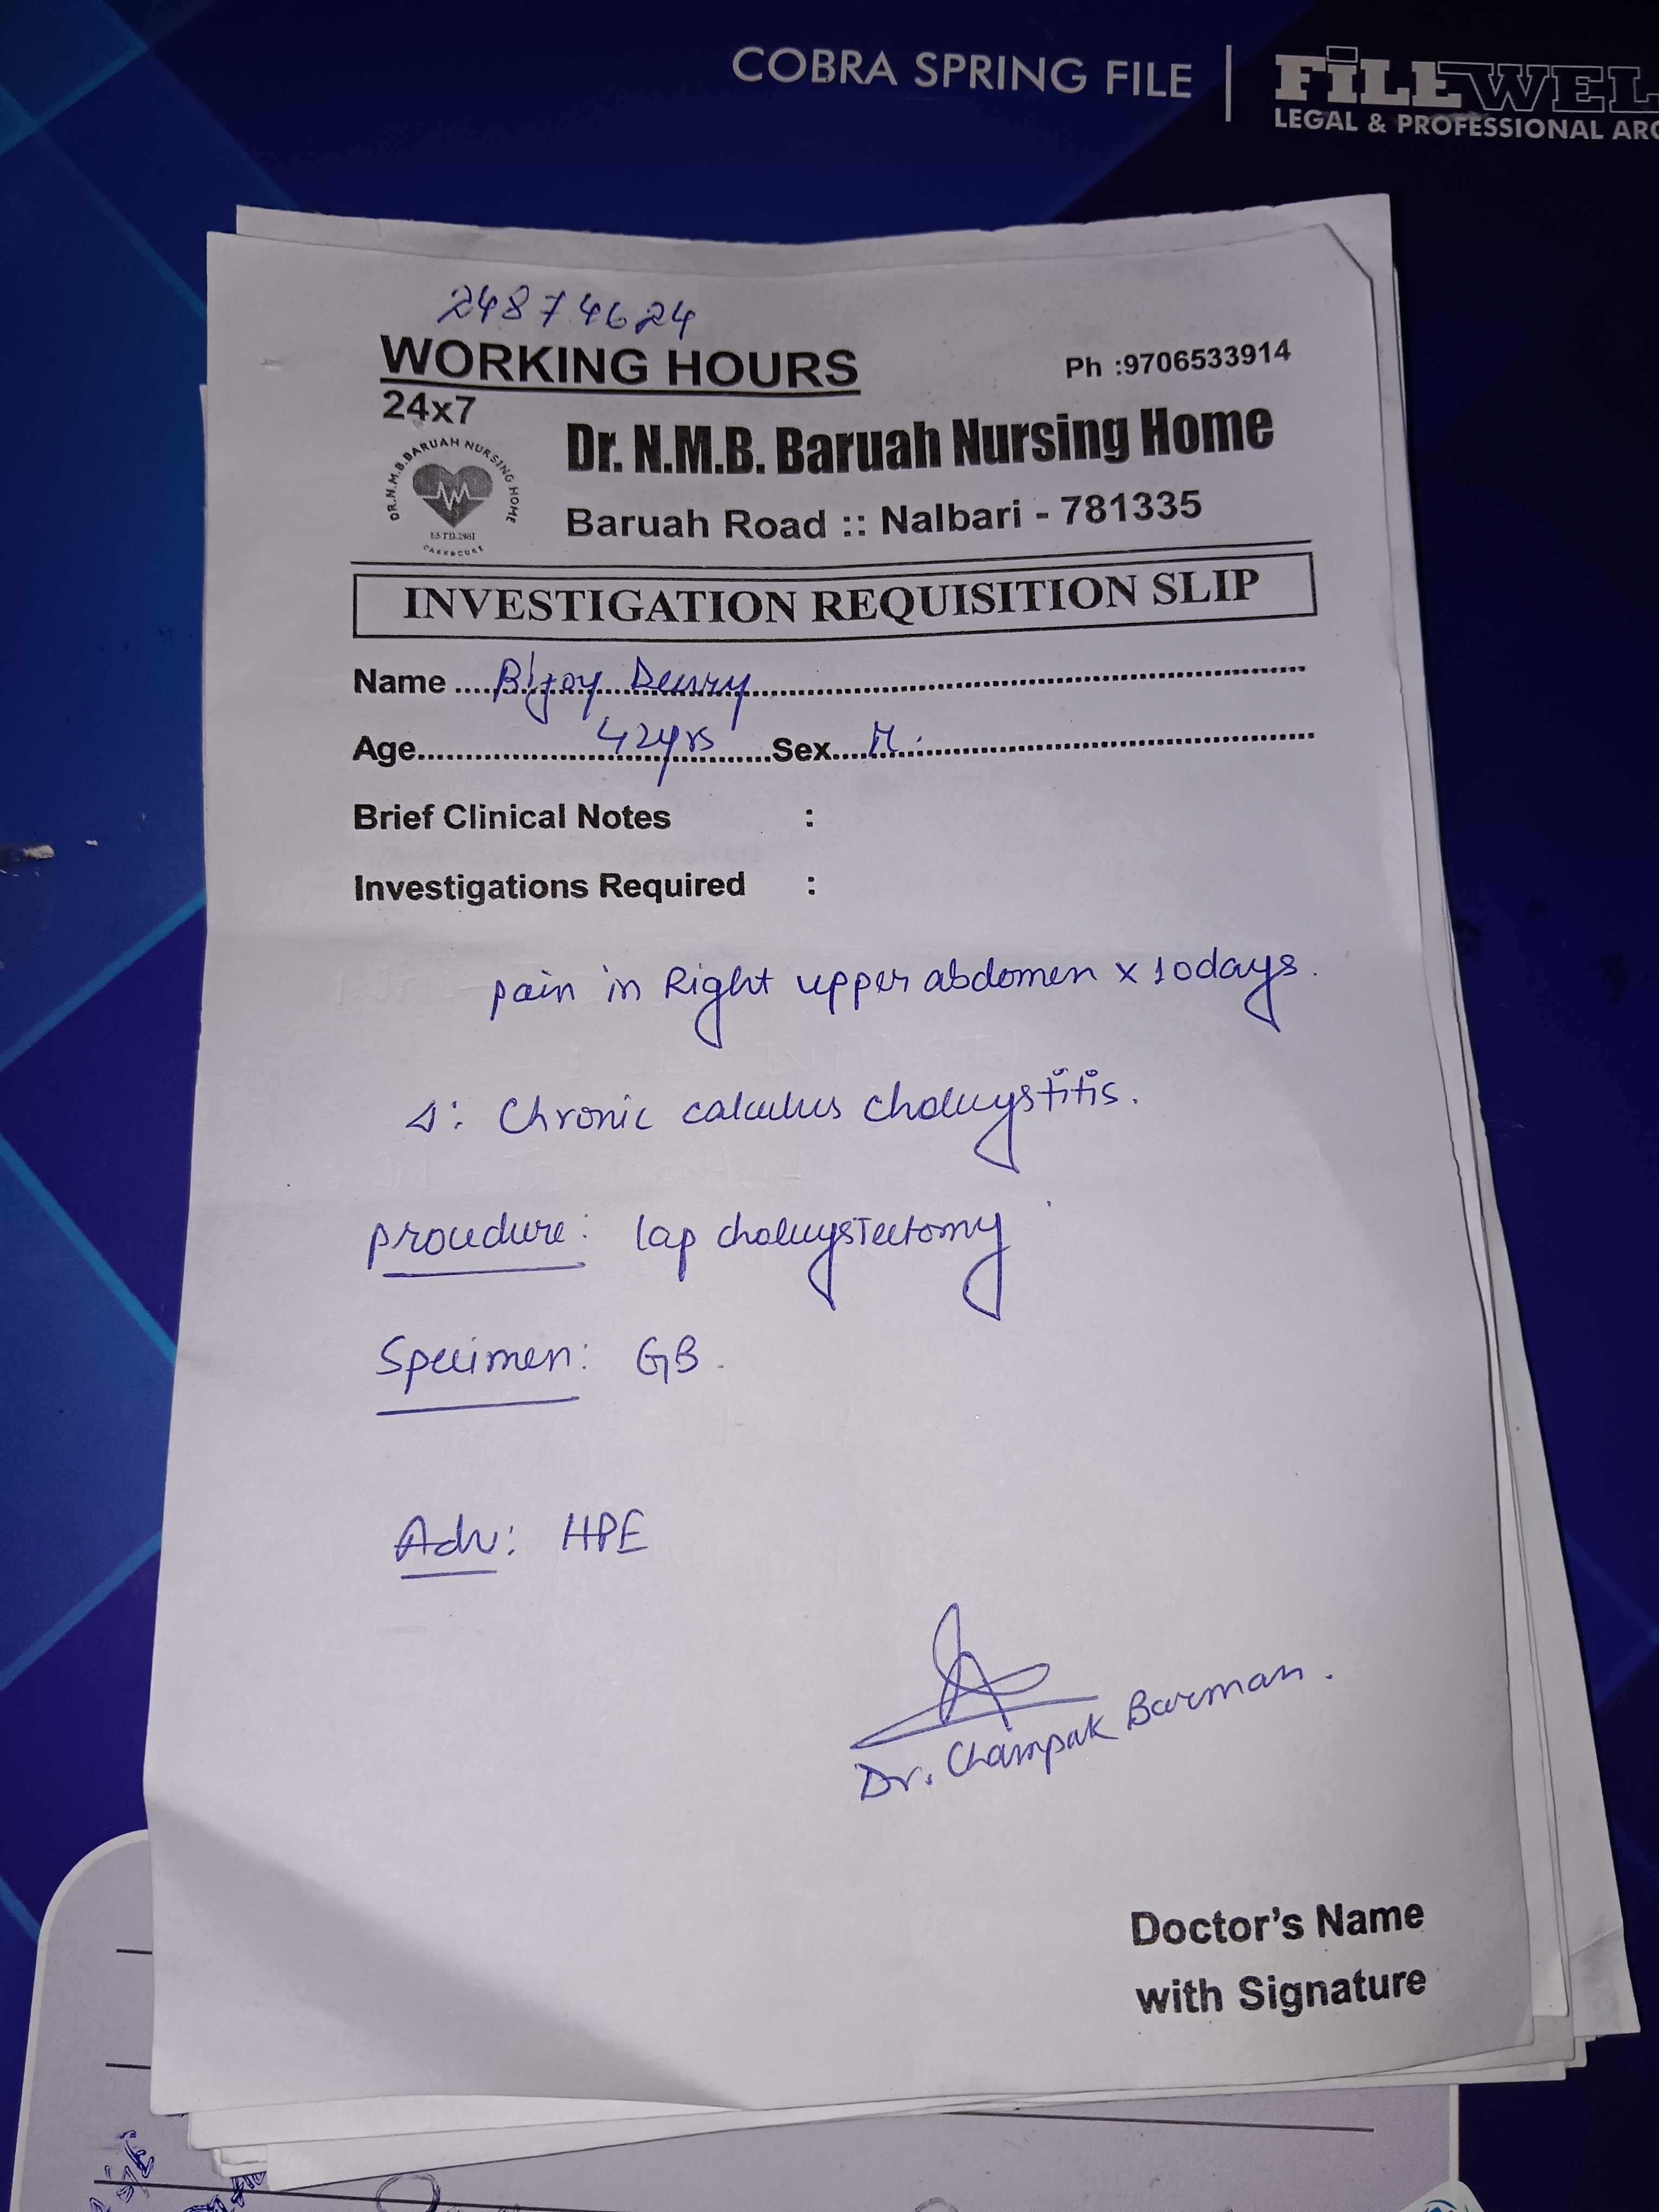 COBRA SPRING FILE | FILEWEL
LEGAL & PROFESSIONAL ARC
24874624
WORKING HOURS
24x7
Ph :9706533914
DR.N.M.B.BARUAH NURSING HOME
ESTD.1981
CARE&CURE
Dr. N.M.B. Baruah Nursing Home
Baruah Road :: Nalbari - 781335
INVESTIGATION REQUISITION SLIP
Name ..... Bijoy Deury
Age..... 42yrs ..... Sex.... M.
Brief Clinical Notes :
Investigations Required :
pain in Right upper abdomen x 10days.
Δ: Chronic calculus cholecystitis.
procedure: lap cholecystectomy
Specimen: GB.
Adv: HPE
Dr. Champak Barman.
Doctor's Name
with Signature